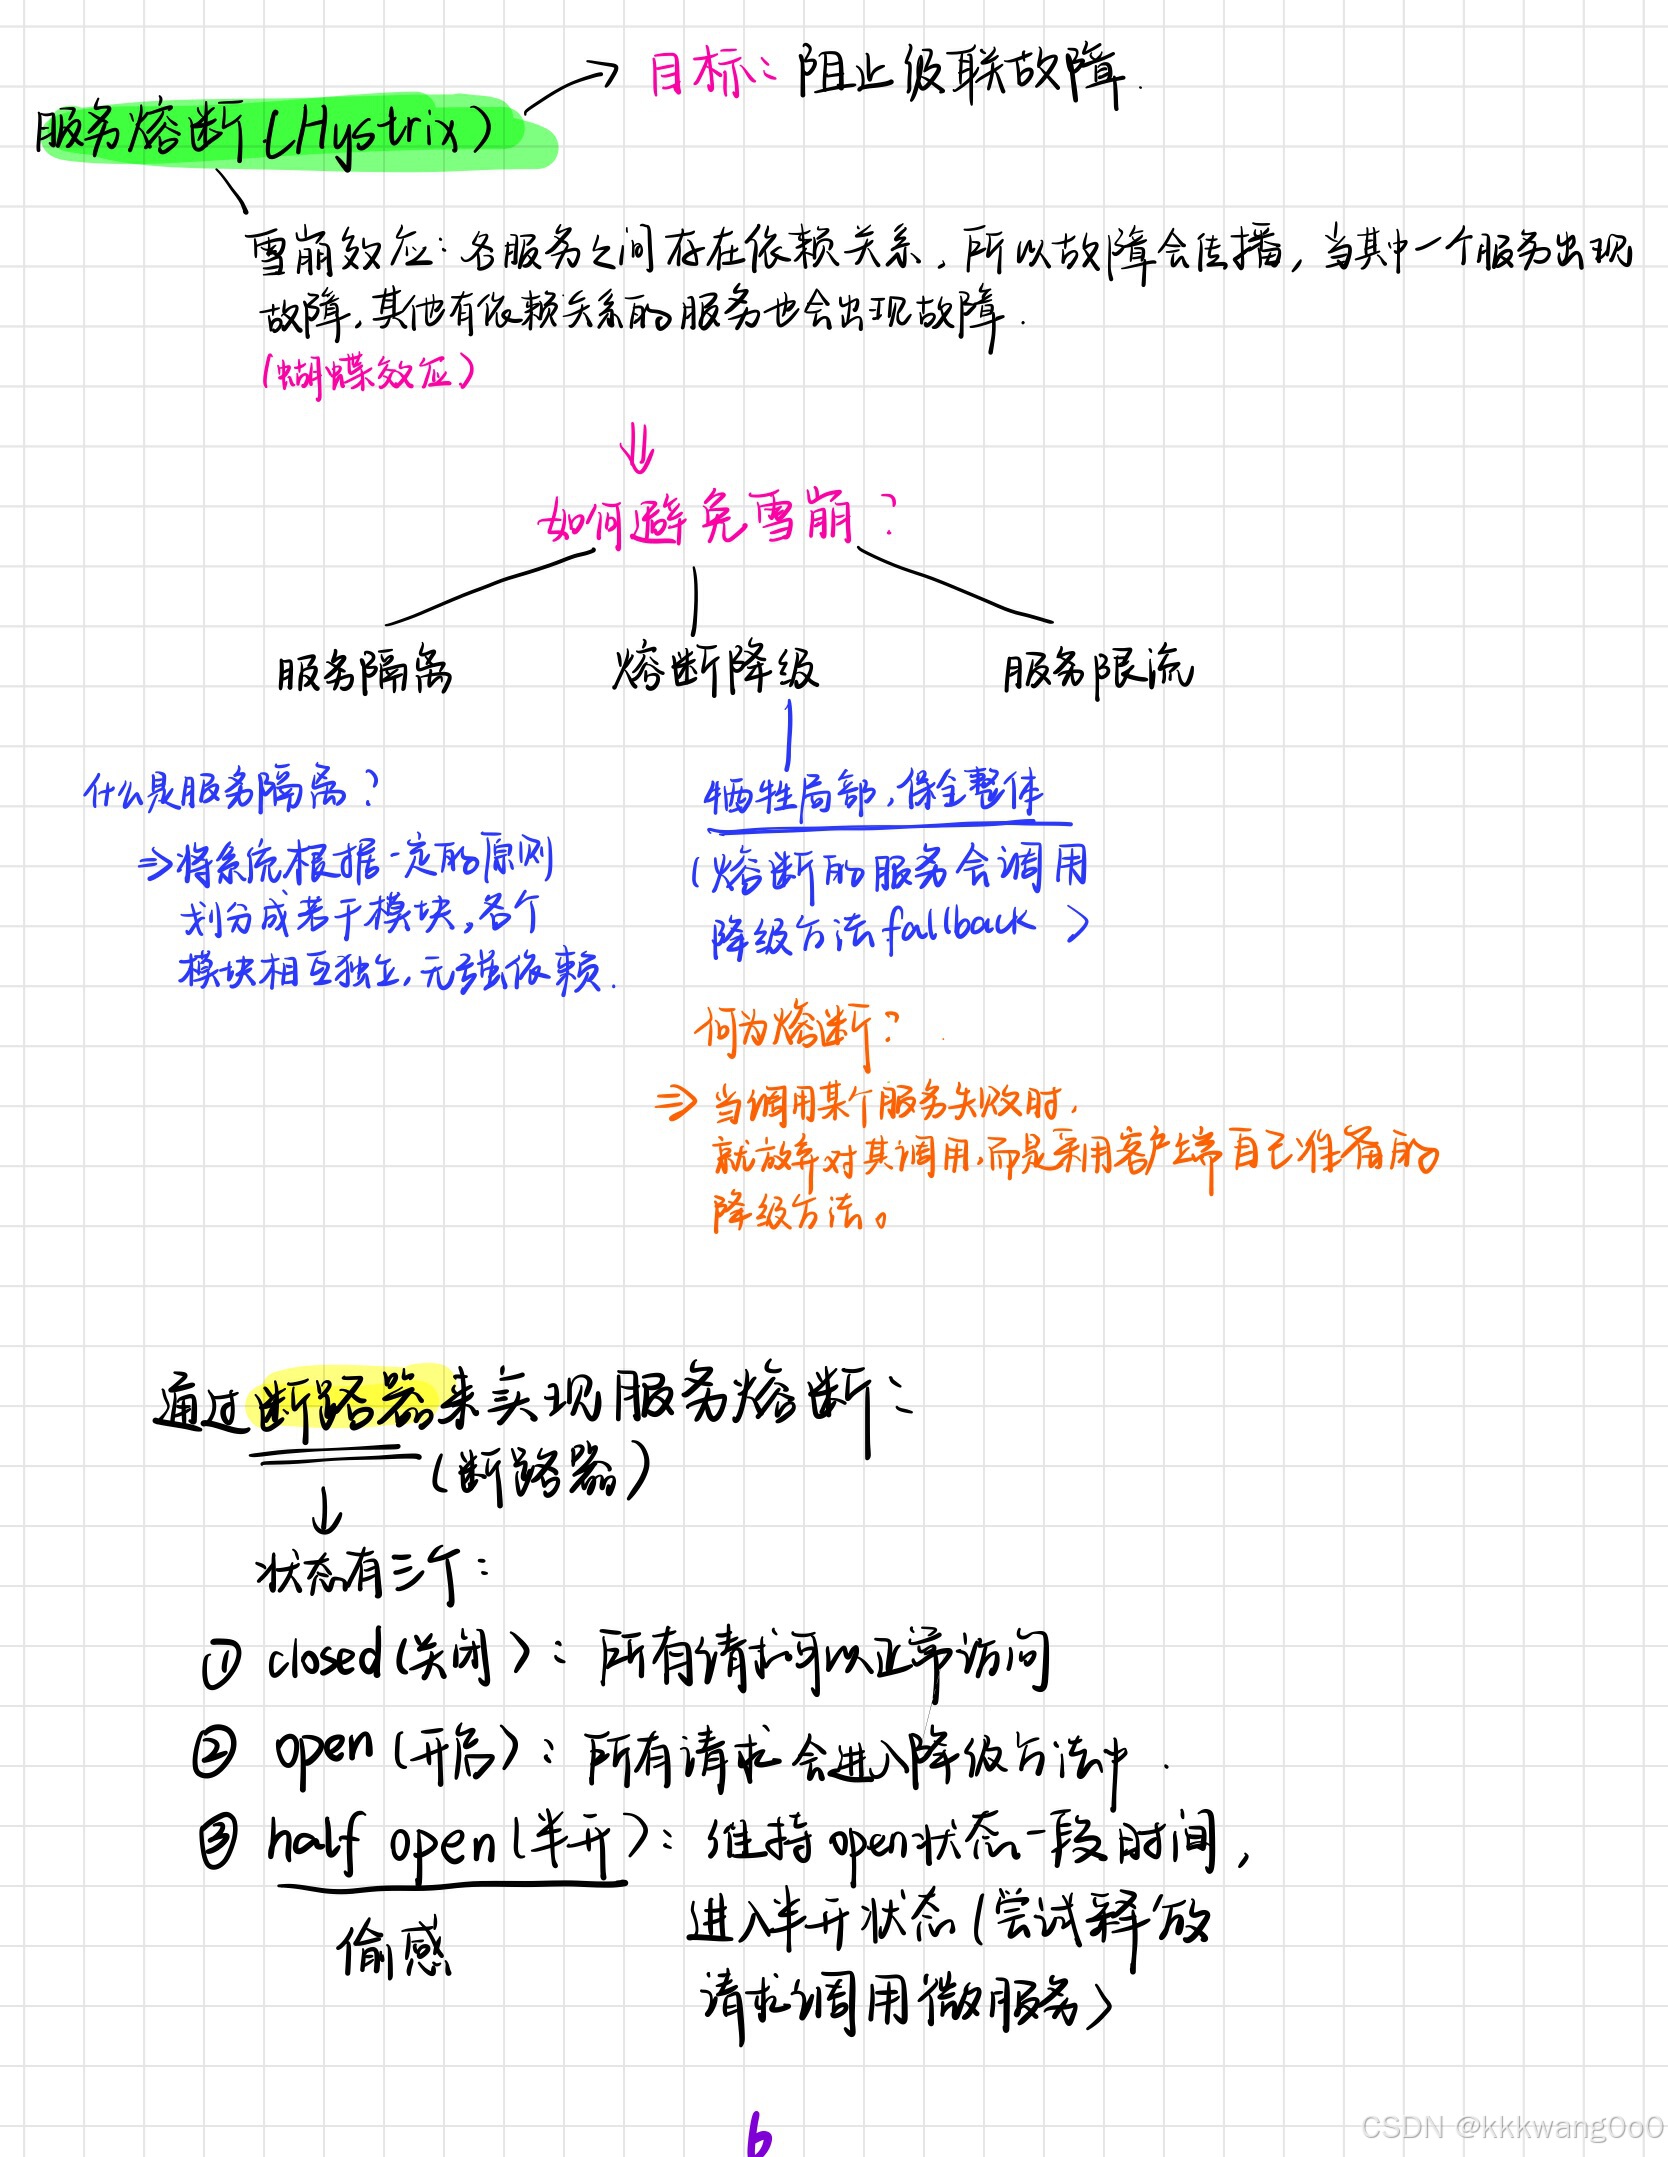 目标：阻止级联故障.
服务熔断(Hystrix)
雪崩效应：各服务之间存在依赖关系，所以故障会传播，当其中一个服务出现
故障，其他有依赖关系的服务也会出现故障.
(蝴蝶效应)
如何避免雪崩？
服务隔离 熔断降级 服务限流
什么是服务隔离？
⇒将系统根据一定的原则
划分成若干模块,各个
模块相互独立,无强依赖.
牺牲局部,保全整体
(熔断的服务会调用
降级方法fallback)
何为熔断？
⇒当调用某个服务失败时,
就放弃对其调用,而是采用客户端自己准备的
降级方法。
通过断路器来实现服务熔断：
(断路器)
状态有三个：
① closed(关闭)：所有请求可以正常访问
② open(开启)：所有请求会进入降级方法中.
③ half open(半开)：维持open状态一段时间,
进入半开状态(尝试释放
请求调用微服务)
偷感
6
CSDN @kkkwang0o0